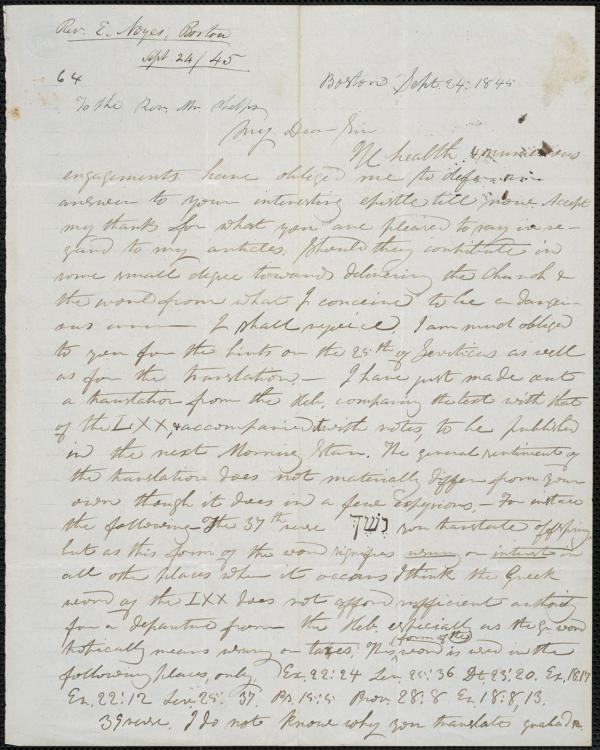 Rev. E. Noyes, Boston
Sept. 24/45
64
Boston Sept. 24: 1845
To the Rev. Mr. Phelps
My Dear Sir
Ill health & numerous
engagements have obliged me to defer an
answer to your interesting epistle till now. Accept
my thanks for what you are pleased to say in re-
gard to my articles. Should they contribute in
some small degree towards delivering the Church &
the world from what I conceive to be a danger-
ous error — I shall rejoice. I am much obliged
to you for the hints on the 25th of Leviticus as well
as for the translation. — I have just made out
a translation from the Heb. comparing the text with that
of the LXX, & accompanied it with notes, to be published
in the next Morning Star. The general sentiment of
the translation does not materially differ from your
own though it does in a few expressions. — For instance
the following — The 37th verse נֶשֶׁךְ you translate offspring,
but as this form of the word signifies usury or interest in
all other places where it occurs I think the Greek
word of the LXX does not afford sufficient authority
for a departure from the Heb. especially as the Gr. word
means usury or taxes. This (form of the) word is used in the
following places, only. Ex. 22:24 Lev. 25:36 Dt. 23:20. Ez. 18:17
Ez. 22:12 Lev. 25: 37. Ps. 15:5 Prov. 28:8 Ez. 18:8, 13.
39 verse. I do not know why you translate